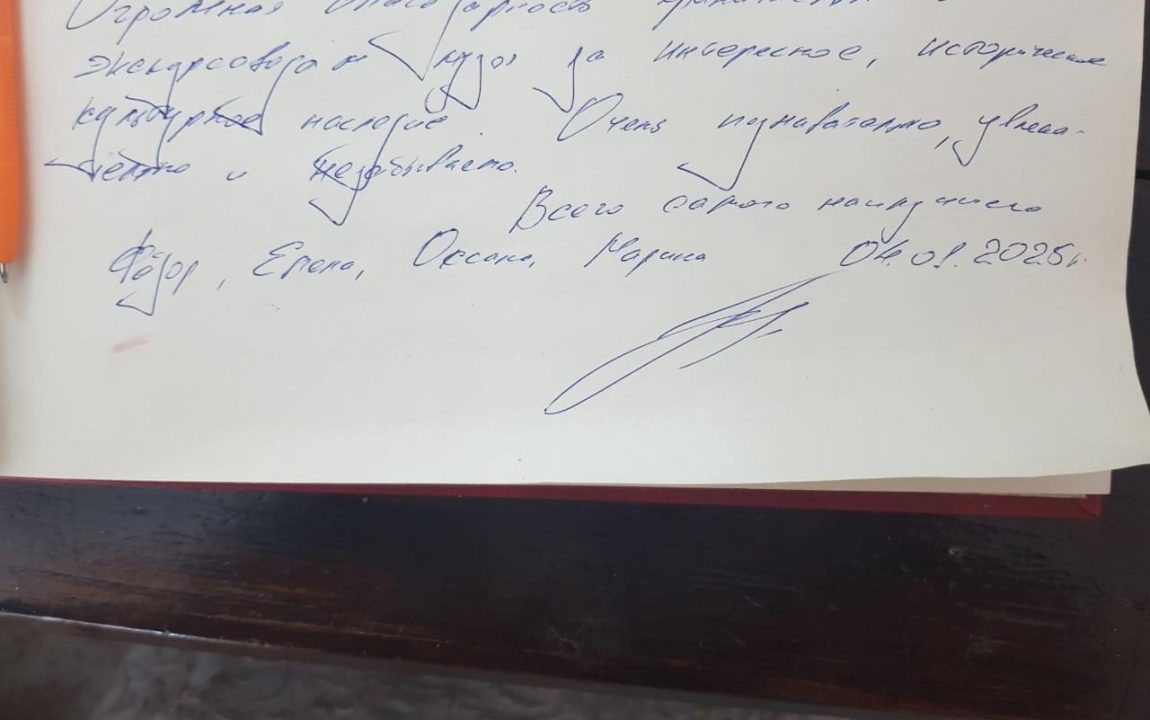 Огромная благодарность
экскурсоводам за интересное, историческое
культурное наследие. Очень познавательно, увлека-
тельно и незабываемо.
Всего самого наилучшего
Фёдор, Елена, Оксана, Марина 04.01.2025г.